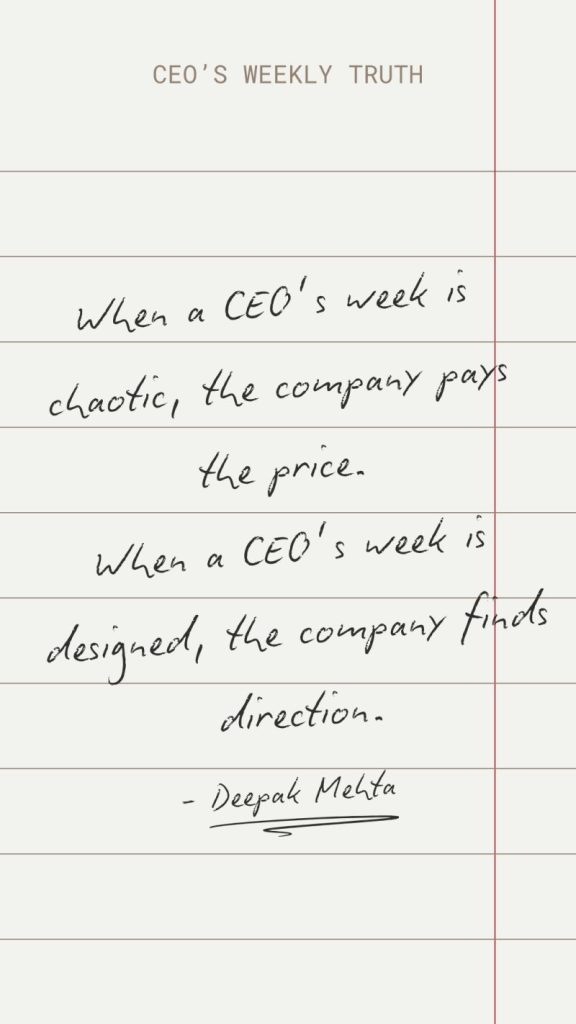 CEO’S WEEKLY TRUTH
When a CEO's week is
chaotic, the company pays
the price.
When a CEO's week is
designed, the company finds
direction.
- Deepak Mehta